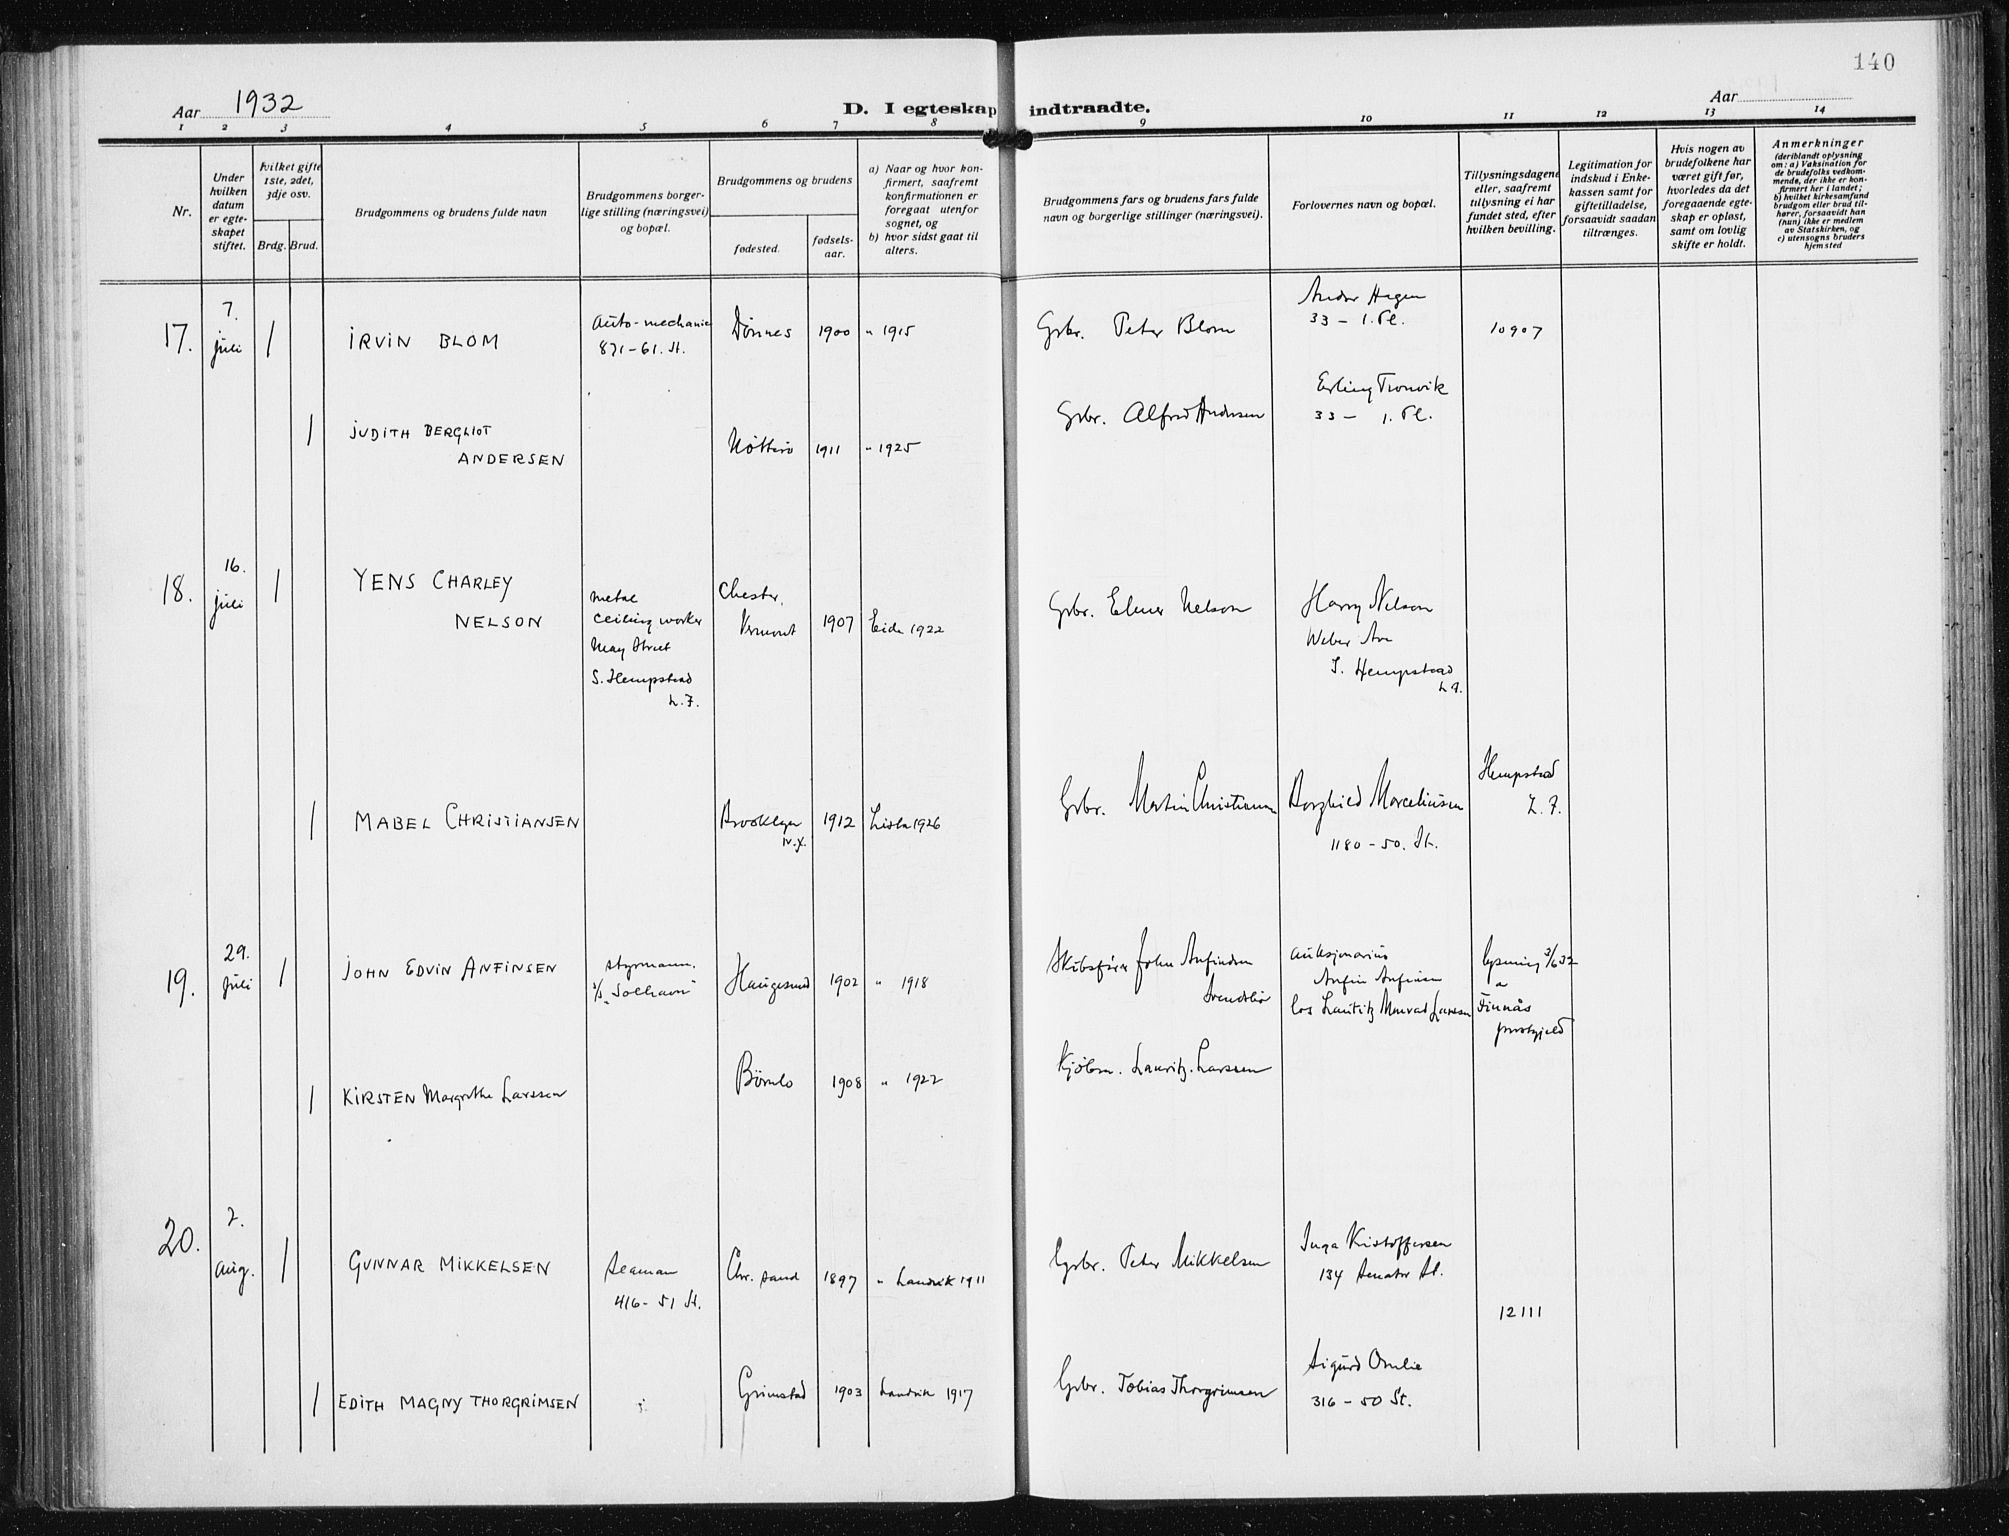 140
Aar 1932
D. I egteskap indtraadte.
Aar
1 2 3 4 5 6 7 8 9 10 11 12 13 14
Nr.
Under hvilken datum er egteskapet stiftet.
hvilket gifte 1ste, 2det, 3dje osv.
Brdg. Brud.
Brudgommens og brudens fulde navn
Brudgommens borgerlige stilling (næringsvei) og bopæl.
Brudgommens og brudens
fødested.
fødselsaar.
a) Naar og hvor konfirmert, saafremt konfirmationen er foregaat utenfor sognet, og
b) hvor sidst gaat til alters.
Brudgommens fars og brudens fars fulde navn og borgerlige stillinger (næringsvei).
Forlovernes navn og bopæl.
Tillysningsdagene eller, saafremt tillysning ei har fundet sted, efter hvilken bevilling.
Legitimation for indskud i Enkekassen samt for giftetilladelse, forsaavidt saadan tiltrænges.
Hvis nogen av brudefolkene har været gift før, hvorledes da det foregaaende egteskap er opløst, samt om lovlig skifte er holdt.
Anmerkninger
(deriblandt oplysning om: a) Vaksination for de brudefolks vedkommende, der ikke er konfirmert her i landet; b) hvilket kirkesamfund brudgom eller brud tilhører, forsaavidt han (hun) ikke er medlem av Statskirken, og c) utensogns bruders hjemsted
17.
7. juli
1
IRVIN BLOM
Auto-mechanic
871-61. St.
Dønnes
1900
" 1915
Grbr. Peter Blom
Hagen
33 - 1. Pl.
10907
1
JUDITH BERGLIOT
ANDERSEN
Nøtterö
1911
" 1925
Grbr. Alfred Andersen
Erling Tronvik
33 - 1. Pl.
18.
16. juli
1
YENS CHARLEY
NELSON
metal
ceiling worker
May Street
S. Hempstead
L.I.
Chester,
Vermont
1907
Eide 1922
Grbr. Elmer Nelson
Harry Nelson
Weber Ave
S. Hempstead
L.I.
1
MABEL CHRISTIANSEN
Brooklyn
N.Y.
1912
Lista 1926
Grbr. Martin Christiansen
Borghild Marceliussen
1180 - 50. St.
Hempstead
L.I.
19.
29. juli
1
JOHN EDVIN ANFINSEN
styrmann.
"Solhavn"
Haugesund
1902
" 1918
Skibsfører John Anfindsen
auksjonarius
Anfin Anfinsen
los Lauritz Monrad Larssen
lysning 3/6 32
Finnås
prestegjeld
1
KIRSTEN Margrethe Larssen
Börnlo
1908
" 1922
Kjöbm. Lauritz. Larssen
20.
2. aug.
1
GUNNAR MIKKELSEN
seaman
416 - 51 St.
Chr. sand
1897
" Landvik 1911
Grbr. Peter Mikkelsen
Inga Kristoffersen
134 Senator St.
12111
1
EDITH MAGNY THORGRIMSEN
Grimstad
1903
Landvik 1917
Grbr. Tobias Thorgrimsen
Sigurd Omlie
316 - 50 St.